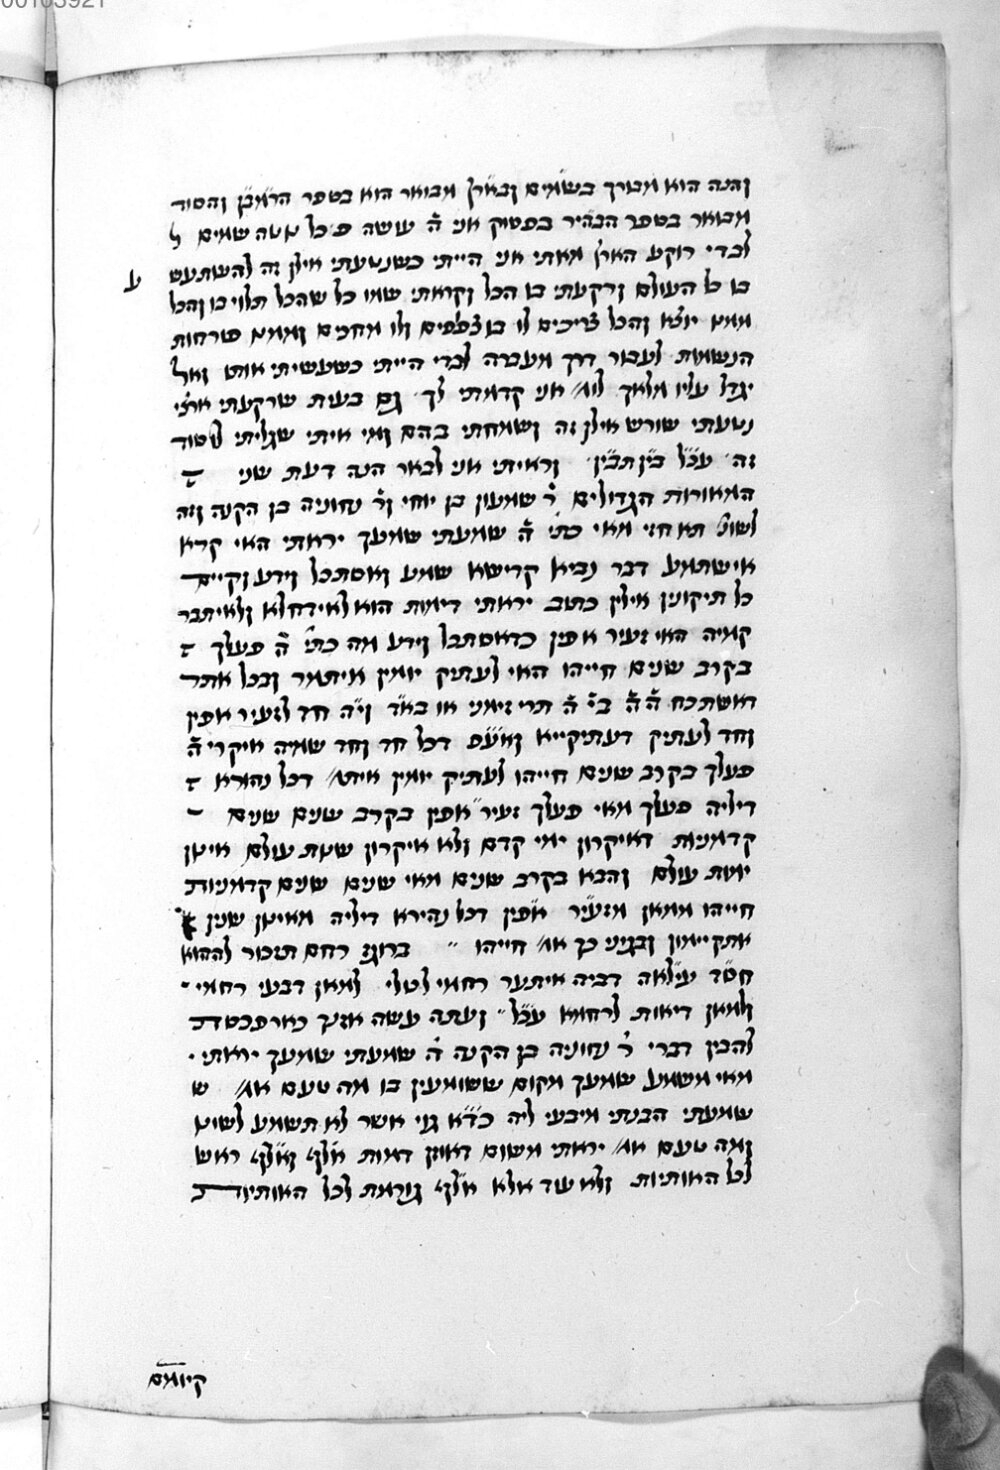 00163921
והנה הוא מבורך בשמים ובארץ מבואר הוא בספר הרמב"ן והסוד
מבואר בספר הבהיר בפסוק אני ה' עושה כל נוטה שמים ל
לבדי רוקע הארץ מאתי אני הייתי כשנטעתי אילן זה להשתעש
ע
בו כל העולם ורקעתי בו הכל וקראתי שמו כל שהכל תלוי בו והכל
ממנו יוצא והכל צריכים לו בו צופים ולו מחכים וממנו פורחות
הנשמות לעבור דרך מעברה לבדי הייתי כשעשיתי אותו ואל
יגדל עליו מלאך לומ' אני קדמתי לך גם בעית שרקעתי ארצי
נטעתי שורש אילן זה ושמחתי בהם ומי איתי שגליתי לו סוד
זה' עכ"ל בי"ן תבי"ן' וראיתי אני לבאר הנה דעת שני
המאורות הגדולים ר' שמעון בן יוחי ור' נחוניה בן הקנה וזה
לשונו תא חזי מאי כתי' ה' שמעתי שמעך יראתי האי קרא
אישתמע דבר נביא קדישא שמע ואסתכל וידע וקיים
כל תיקונין אילין כתוב יראתי דיאות הוא לאידחלא ולאיתבר
קמיה האי זעיר אפין כדאסתכל וידע מה כתי' ה' פעלך
בקרב שנים חייהו האי לעתיק יומין איתמר ובכל אתר
דאשתכח ה' ה' בי' ה' תרי זימני או בא"ד וי"ה חד לזעיר אפין
וחד לעתיק דעתיקייא ואע"פ דכל חד וחד שמיה איקרי ה'
פעלך בקרב שנים חייהו לעתיק יומין אית' דכל נהורא
דיליה פעלך מאי פעלך זעיר אפין בקרב שנים שנים
קדמניות דאיקרון ימי קדם ולא איקרון שנות עולם אינון
יומת עולם והבא בקרב שנים מאי שנים שנים קדמניות
חייהו ממאן מזעיר אפין דכל נהירא דיליה מאינון שנין
אתקיימון ובגיני כך אמ' חייהו ברוגז רחם תזכור לההוא
חסד עילאה דביה איתער רחמי לכולי למאן דבעי רחמי
ולמאן דיאות לרחמא עכ"ל ועתה עשה אזנך כאפרכסת
להבין דברי ר' נחוניה בן הקנה ה' שמעתי שמעך יראתי
מאי משמע שמעך מקום ששומעין בו מה טעם אמ' ש
שמעתי הבנתי מיבעי ליה כד"א גוי אשר לא תשמע לשונו
ומה טעם אמ' יראתי משום דאוזן דמות אלף ואלף ראש
לכל האותיות ולא עוד אלא אלף גורמת לכל האותיות
קיומם